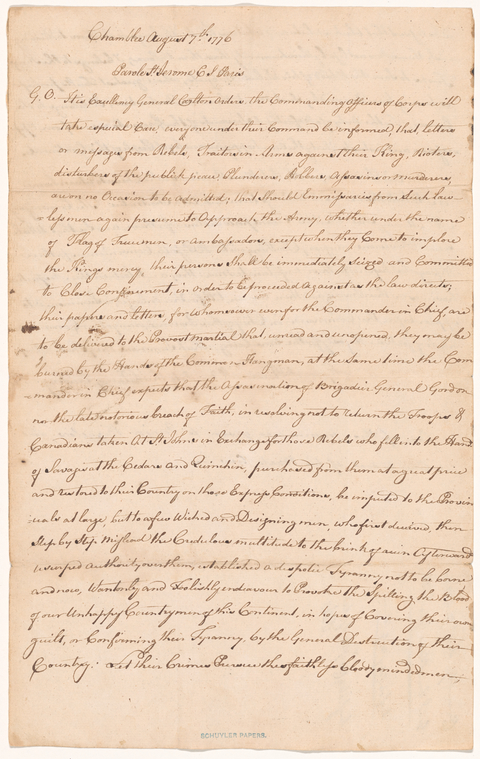 Chamblee August 7th 1776
Parole St Jerome C S Paris
G. O. It is Excellency General Carlton Orders, the Commanding Officers of Corps will
take especial Care, everyone under their Command be informed, that, letters
or messages from Rebels, Traitors in Arms against their King, Rioters,
disturbers of the publick peace, Plunderers, Robbers, Assassins or murderers,
are on no Occasion to be admitted; that Should Emmissaries from Such law
less men again presume to Approach the Army, whether under the name
of Flag of Trucemen, or Ambassadors, except when they Come to implore
the Kings mercy, their persons Shall be immediately Seized and Committed
to Close Confinement, in order to be proceeded Against as the law directs;
their papers and letters, for whomsoever even for the Commander in Chief, are
to be delivered to the Provost martial that, unread and unopened, they may be
burned by the Hands of the Common Hangman, at the Same time the Com
mander in Chief expects that the Assassination of Brigadier General Gordon
nor the late notorious breach of Faith, in resolving not to return the Troops &
Canadians taken At St Johns in Exchange for those Rebels who fell into the Hands
of Savages at the Cedars and Quinchin, purchased from them at a great price
and restored to their Country on those Express Conditions, be imputed to the Provin
cials at large, but to a few Wicked and Designing men, who first deceived, then
Step by Step Mislead the Credulous multitude to the brink of ruin, Afterward
usurped Authority over them, established a despotic Tyranny not to be borne
and now, Wantonly and Foolishly endeavour to Provoke the Spilling the Blood
of our Unhappy Countrymen of this Continent, in hopes of Covering their own
guilt, or Confirming their Tyranny, by the General Destruction of their
Country: Let their Crimes Pursue these faithless bloody minded men,
SCHUYLER PAPERS.